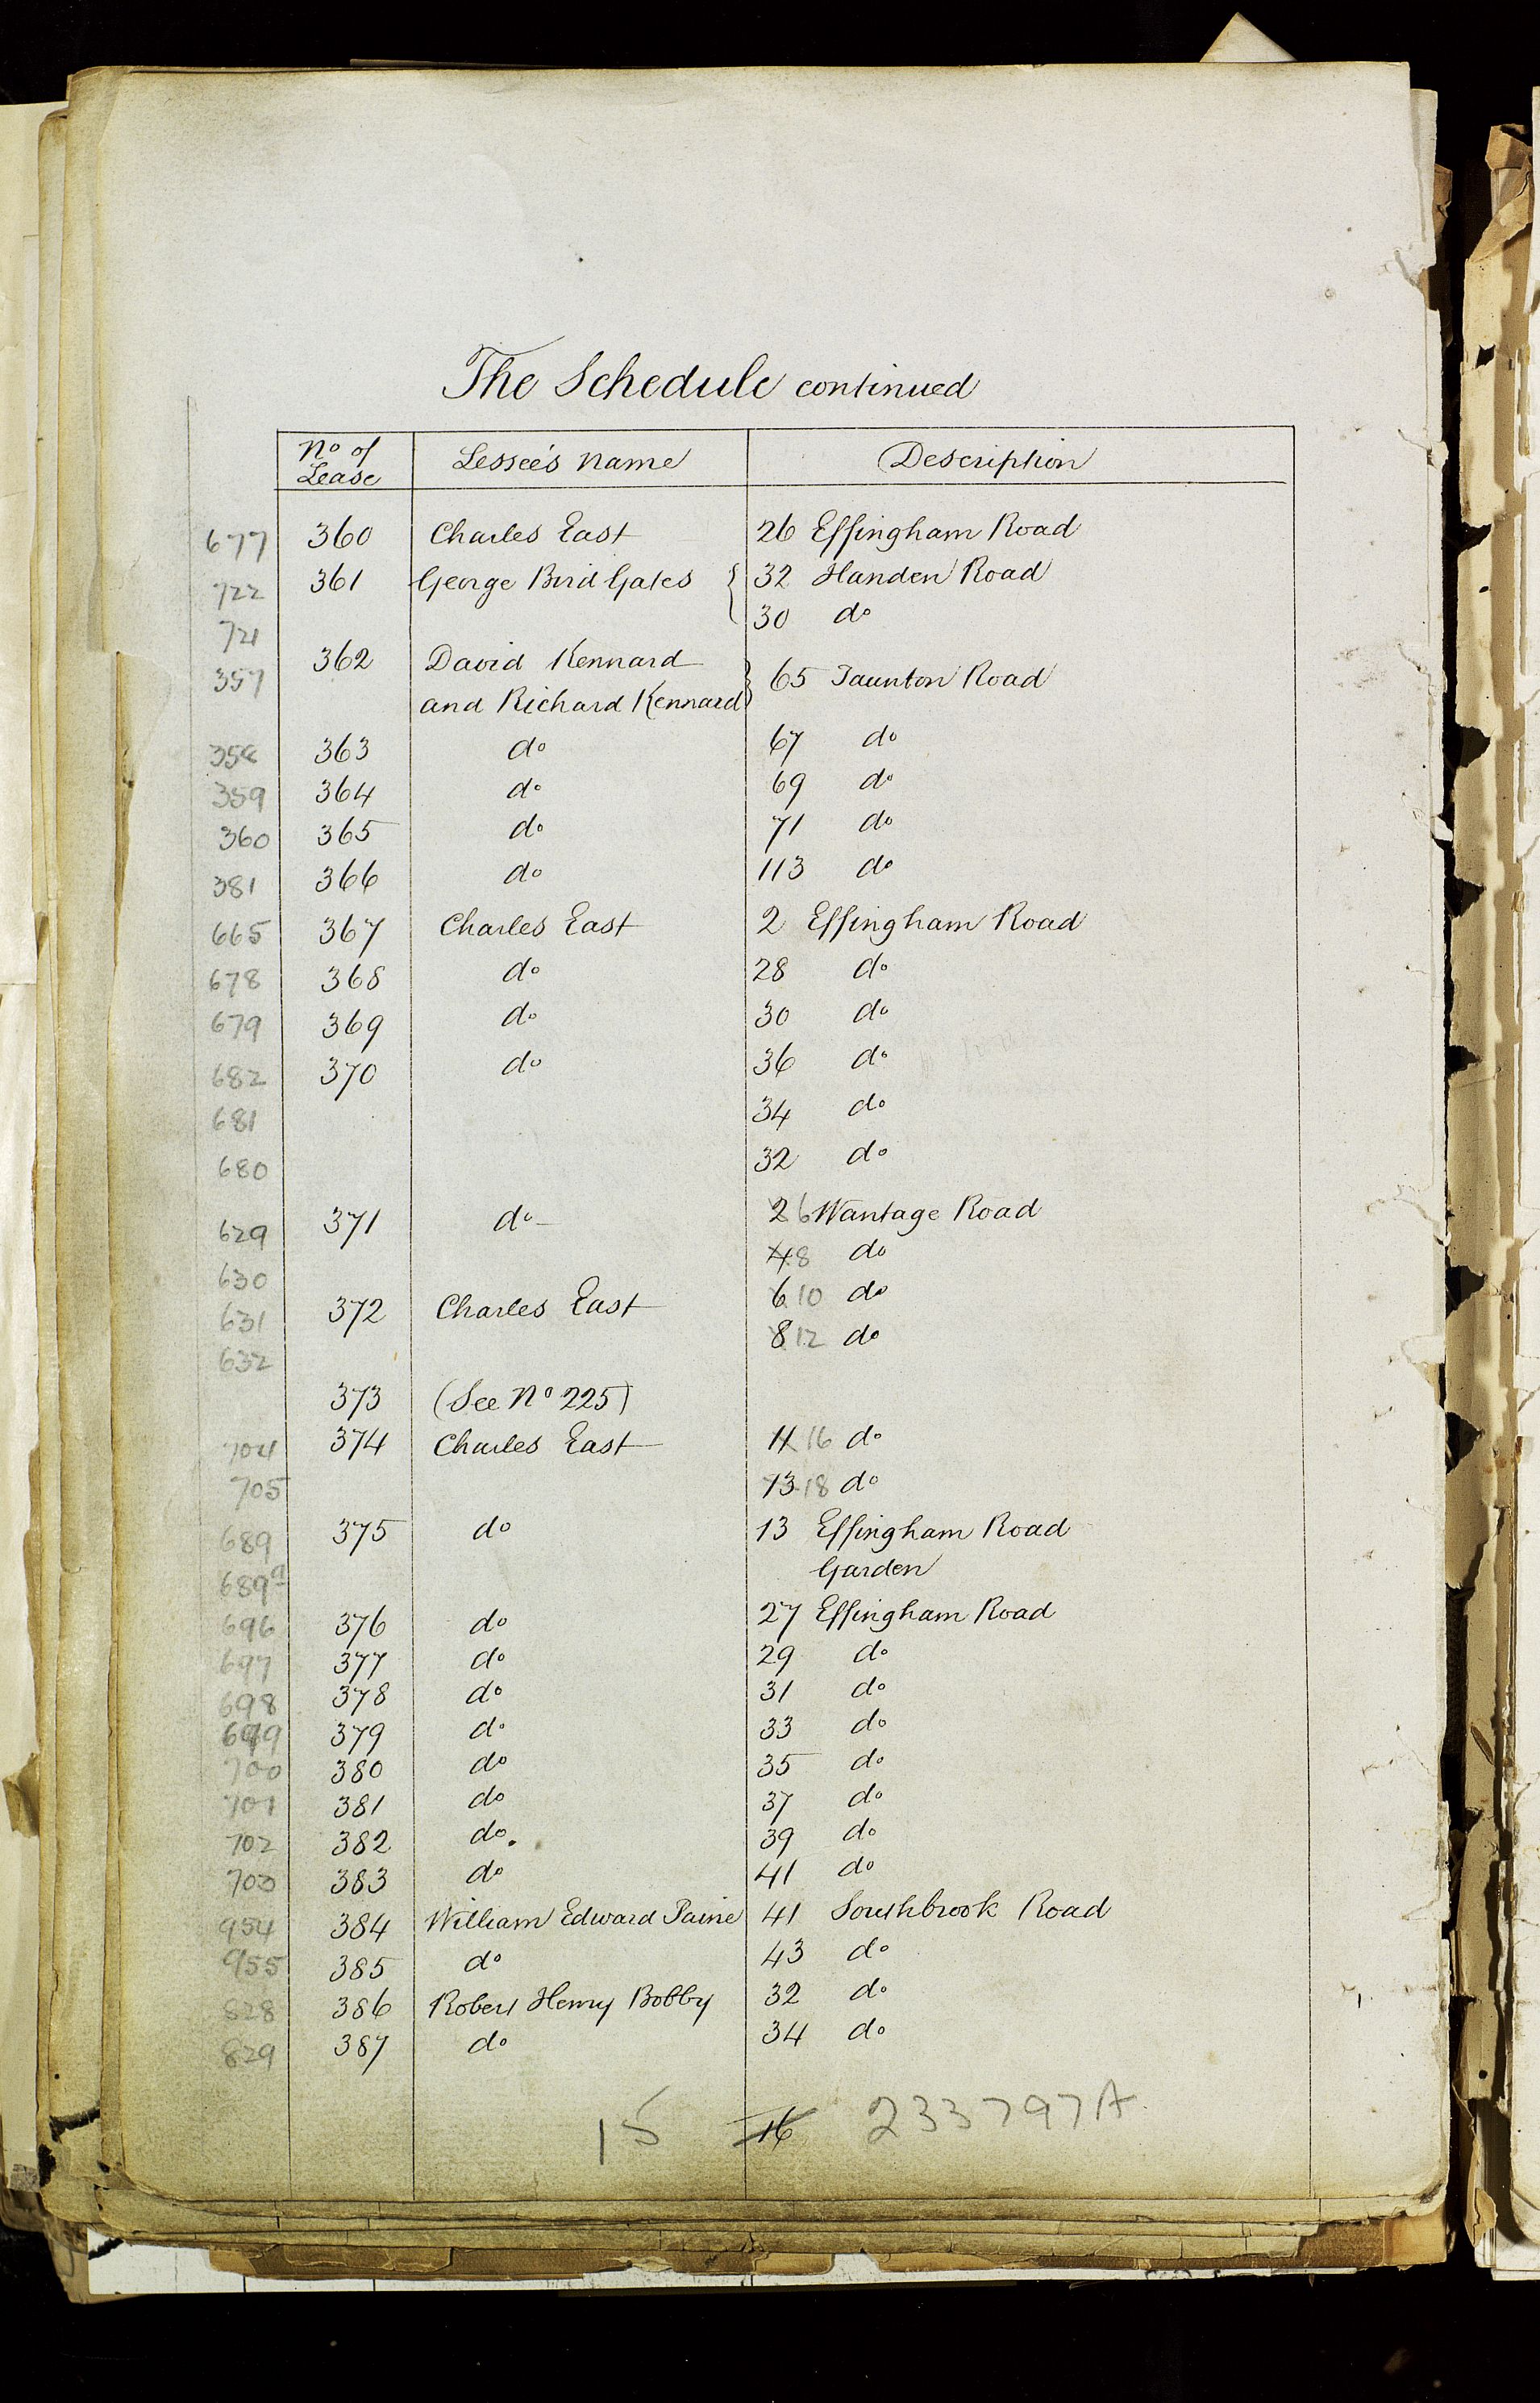 The Schedule continued
No of Lease Lessee's name Description
677 360 Charles East 26 Effingham Road
722 361 George Bird Gates { 32 Handen Road
721 30 do
357 362 David Kennard
and Richard Kennard } 65 Taunton Road
358 363 do 67 do
359 364 do 69 do
360 365 do 71 do
381 366 do 113 do
665 367 Charles East 2 Effingham Road
678 368 do 28 do
679 369 do 30 do
682 370 do 36 do
681 34 do
680 32 do
629 371 do 2 6 Wantage Road
630 4 8 do
631 372 Charles East 6 10 do
632 8 12 do
373 (See No 225)
704 374 Charles East 11 16 do
705 13 18 do
689 375 do 13 Effingham Road
689a Garden
696 376 do 27 Effingham Road
697 377 do 29 do
698 378 do 31 do
699 379 do 33 do
700 380 do 35 do
701 381 do 37 do
702 382 do. 39 do
703 383 do 41 do
954 384 William Edward Paine 41 Southbrook Road
955 385 do 43 do
828 386 Robert Henry Bobby 32 do
829 387 do 34 do
15 16 233797A